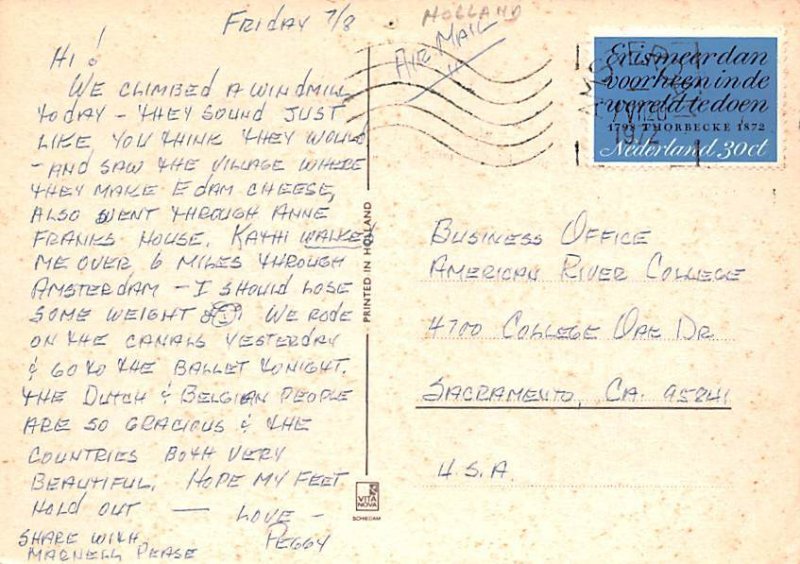 FRIDAY 7/8
HOLLAND
AIR MAIL
HI!
WE CLIMBED A WINDMILL
TODAY - THEY SOUND JUST
LIKE YOU THINK THEY WOULD
- AND SAW THE VILLAGE WHERE
THEY MAKE EDAM CHEESE,
ALSO WENT THROUGH ANNE
FRANKS HOUSE. KATHI WALKED
ME OVER 6 MILES THROUGH
AMSTERDAM - I SHOULD LOSE
SOME WEIGHT WE RODE
ON THE CANALS YESTERDAY
& GO TO THE BALLET TONIGHT.
THE DUTCH & BELGIAN PEOPLE
ARE SO GRACIOUS & THE
COUNTRIES BOTH VERY
BEAUTIFUL. HOPE MY FEET
HOLD OUT — LOVE -
PEGGY
SHARE WITH
MARNELL PEASE
PRINTED IN HOLLAND
VITA
NOVA
SCHIEDAM
Er is meer dan
voorheen in de
wereld te doen
1798 THORBECKE 1872
Nederland 30ct
BUSINESS OFFICE
AMERICAN RIVER COLLEGE
4700 COLLEGE OAK DR
SACRAMENTO, CA. 95841
U.S.A.